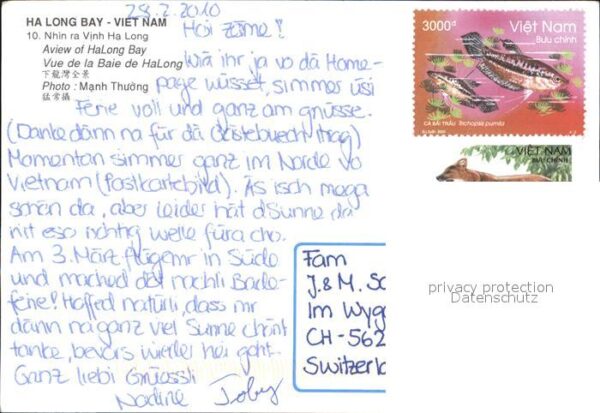 28.2.2010
HA LONG BAY - VIET NAM
10. Nhìn ra Vịnh Hạ Long
Aview of HaLong Bay
Vue de la Baie de HaLong
下龍灣全景
Photo : Mạnh Thường
猛常攝
Hoi zäme!
Wiä ihr ja vo dä Home-
page wüsset, simmer üsi
Ferie voll und ganz am gnüsse.
(Danke dänn na für dä Gästebuechiitrag)
Momentan simmer ganz im Norde vo
Vietnam (Postkartebild). Äs isch mega
schön da, aber leider hät d'Sunne da
nit eso richtig welle füra cho.
Am 3. März flügemr in Süde
und mached döt nachli Bade-
ferie! Hoffed natürli, dass mr
dänn na ganz viel Sunne chönt
tanke, bevors wieder hei goht.
Ganz liebi Grüessli
Nadine Toby
3000đ
Việt Nam
Bưu chính
CÁ BÃI TRẦU Trichopsis pumila
VIỆT NAM
BƯU CHÍNH
Fam
J. & M. Sc
Im Wyg
CH-562
Switzerla
privacy protection
Datenschutz